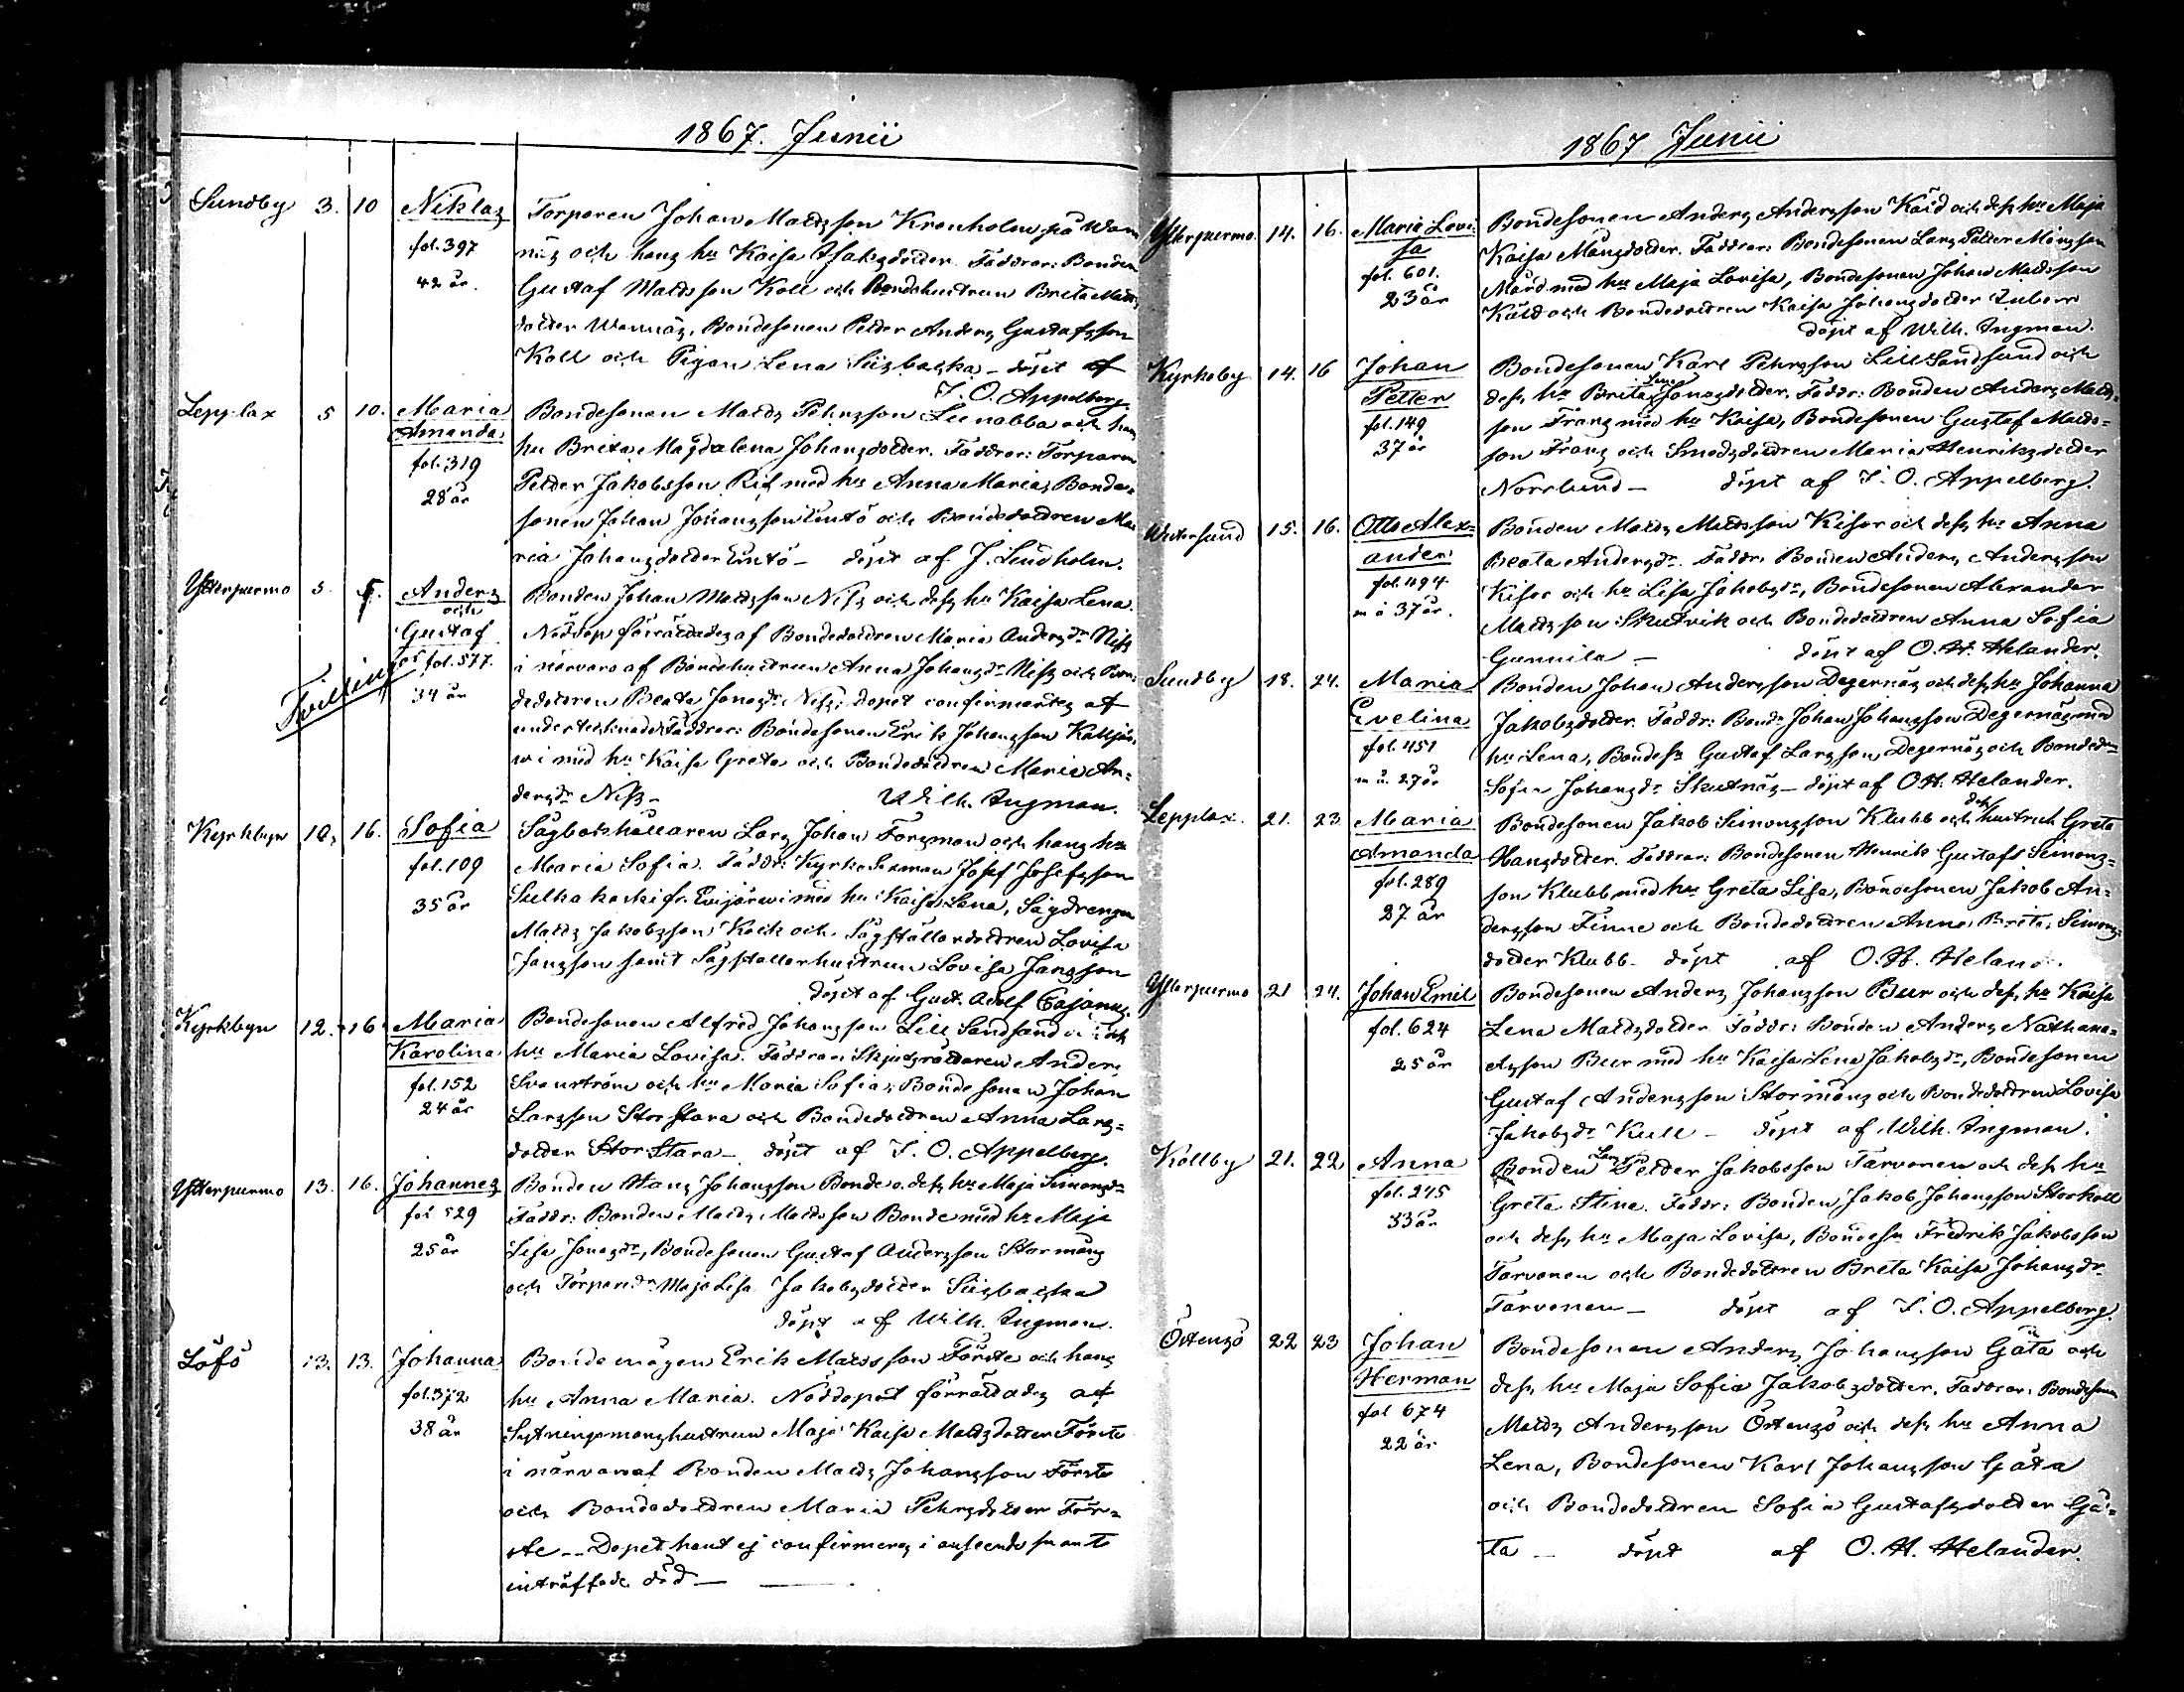 1867. Junii
Sundby 3. 10 Niklas Torparen Johan Mattsson Kronholm på Wam
fol. 397 näs och hans hu Kajsa Isaksdotter. Faddrar: Bonden
42 år. Gustaf Mattsson Koll och Bondehustrun Brita Matts
dotter Wannäs, Bondesonen Petter Anders Gustafsson
Koll och Pigan Lena Siisbacka – döpt af
I. O. Appelberg.
Lepplax 5 10. Maria Bondesonen Matts Pehrsson Leenabba och hans
Amanda hu Brita Magdalena Johansdotter. Faddrar: Torparen
fol. 319 Petter Jakobsson Rif med hu Anna Maria, Bonde=
28 år sonen Johan Johansson Emtö och Bondedottren Ma
ria Johansdotter Emtö – döpt af J. Lindholm.
Ytterpurmo 5. 5. Anders Bonden Johan Mattsson Niss och dess hu Kajsa Lena.
och
Gustaf Nöddop förrättades af Bondedottren Maria Andersdr Niss
Tvillingar fol. 577. i närvaro af Bondehustrun Anna Johansdr Niss och Bon=
34 år dedottren Beata Jonasdr Niss; dopet confirmertes af
undertecknad. Faddrar: Bondesonen Erik Johansson Kaitjär
wi med hu Kajsa Greta och Bondedottren Maria An=
dersdr Niss – Wilh. Ingman.
Kyrkbyn 10. 16. Sofia Sågbokhållaren Lars Johan Forsman och hans hu
fol. 109 Maria Sofia. Faddr: Kyrko Sexman Josef Josefsson
35 år Sulkakoski fr. Evijärwi med hu Kaisa Lena, Sågdrengen
Matts Jakobsson Kock och Sågställaredottren Lovisa
Jansson samt Sågställarhustrun Lovisa Jansson
döpt af Gust. Adolf Cajanus.
Kyrkbyn 12. 16 Maria Bondesonen Alfred Johansson Lill Sandsund och
Karolina hu Maria Lovisa. Faddrar: Skjutsrättaren Anders
fol. 152 Svanström och hu Maria Sofia, Bondesonen Johan
24 år Larsson Storstara och Bondedottren Anna Lars=
dotter Storstara – döpt af I. O. Appelberg.
Ytterpurmo 13. 16. Johannes Bonden Hans Johansson Bonde o. dess hu Maja Simonsdr
fol 529 Faddr: Bonden Matts Mattsson Bonde med hu Maja
25 år Lisa Jonasdr, Bondesonen Gustaf Andersson Stormåns
och Torparedr Maja Lisa Jakobsdotter Siisbacka
döpt af Wilh. Ingman.
Löfö 13. 13. Johanna Bondemågen Erik Matsson Förste och hans
fol. 372 hu Anna Maria. Nöddopet förrättades af
38 år Sytningsmanshustrun Maja Kaisa Mattsdotter Förste
i närvaro af Bonden Matts Johansson Förste
och Bondedottren Maria Pehrsdotter För=
ste – Dopet hant ej confirmeras i anseende snart
inträffade död –
1867 Junii
Ytterpurmo. 14. 16. Maria Lovi Bondesonen Anders Andersson Käld och dess hu Maja
sa Kajsa Månsdotter. Faddrar: Bondesonen Lars Petter Månsson
fol. 601. Mård med hu Maja Lovisa, Bondesonen Johan Mattsson
23 år Käld och Bondedottren Kaisa Johansdotter
döpt af Wilh. Ingman.
Kyrkoby 14. 16 Johan Bondesonen Karl Pehrsson Lill Sandsund och
Petter dess hu Brita Lena Jonasdotter. Faddr: Bonden Anders Matts=
fol. 149 son Frans med hu Kaisa, Bondesonen Gustaf Matts=
37 år son Frans och Smedsdottren Maria Henriksdotter
Norrlund – döpt af I. O. Appelberg.
Westersund 15. 16. Otto Alex= Bonden Matts Mattsson Kisor och dess hu Anna
ander Beata Andersdr. Faddr: Bonden Anders Andersson
fol. 494 Kisor och hu Lisa Jakobsdr, Bondesonen Alexander
m å 37 år. Mattsson Skutvik och Bondedottren Anna Sofia
Gunnila – döpt af O. H. Helander.
Sundby 18. 24. Maria Bonden Johan Andersson Degernäs och dess hu Johanna
Evelina Jakobsdotter. Faddr: Bond. Johan Johansson Degernäs med
fol. 451 hu Lena, Bondesn Gustaf Larsson, Degernäs och Bondedn
m å. 27 år Sofia Johansdr Skutnäs – döpt af O. H. Helander.
Lepplax. 21. 23 Maria Bondesonen Jakob Simonsson Klubb och dess hustru Greta
Amanda Hansdotter. Faddrar: Bondesonen Henrik Gustaf Simons=
fol. 289 son Klubb med hu Greta Lisa, Bondesonen Jakob An=
27 år dersson Finne och Bondedottren Anna Brita Simons
dotter Klubb – döpt af O. H. Heland
Ytterpurmo 21 24. Johan Emil Bondesonen Anders Johansson Beer och dess hu Kaisa
fol. 624 Lena Mattsdotter. Faddr: Bonden Anders Nathana=
25 år elsson Beer med hu Kaisa Lena Jakobsdr, Bondesonen
Gustaf Andersson Stormåns och Bondedottren Lovisa
Jakobsdr Kull – döpt af Wilh. Ingman.
Kållby 21. 22 Anna Bonden Lars Petter Jakobsson Tarvonen och dess hu
fol. 245 Greta Stina. Faddr: Bonden Jakob Johansson Storkall
33 år och dess hu Maja Lovisa, Bondesn Fredrik Jakobsson
Tarvonen och Bondedottren Brita Kaisa Johansdr
Tarvonen – döpt af I. O. Appelberg.
Östensö 22 23 Johan Bondesonen Anders Johansson Gäta och
Herman dess hu Maja Sofia Jakobsdotter. Faddrar: Bondesonen
fol 674 Matts Andersson Östensö och dess hu Anna
22 år Lena, Bondesonen Karl Johansson Gäta
och Bondedottren Sofia Gustafsdotter Gä=
ta – döpt af O. H. Helander.